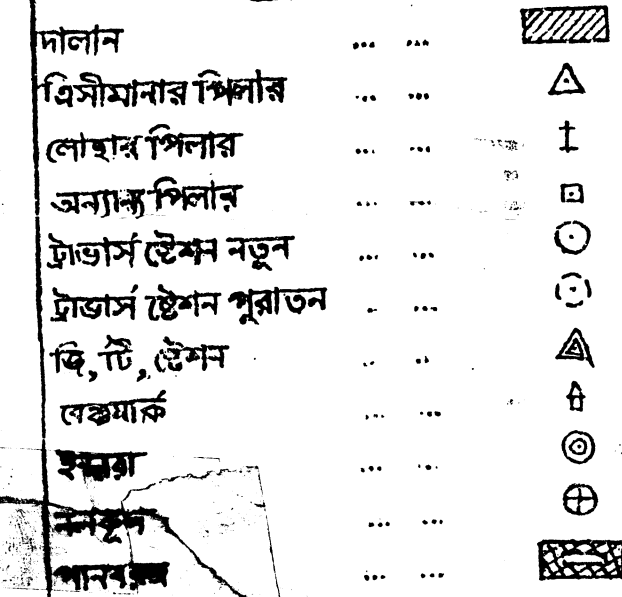 দালান ... ...
ত্রিসীমানার পিলার ... ...
লোহার পিলার ... ...
অন্যান্য পিলার ... ...
ট্রাভার্স ষ্টেশন নতুন ... ...
ট্রাভার্স ষ্টেশন পুরাতন ... ...
জি, টি, ষ্টেশন ... ...
বেঞ্চমার্ক ... ...
ইন্দারা ... ...
নলকূপ ... ...
পানবরজ ... ...